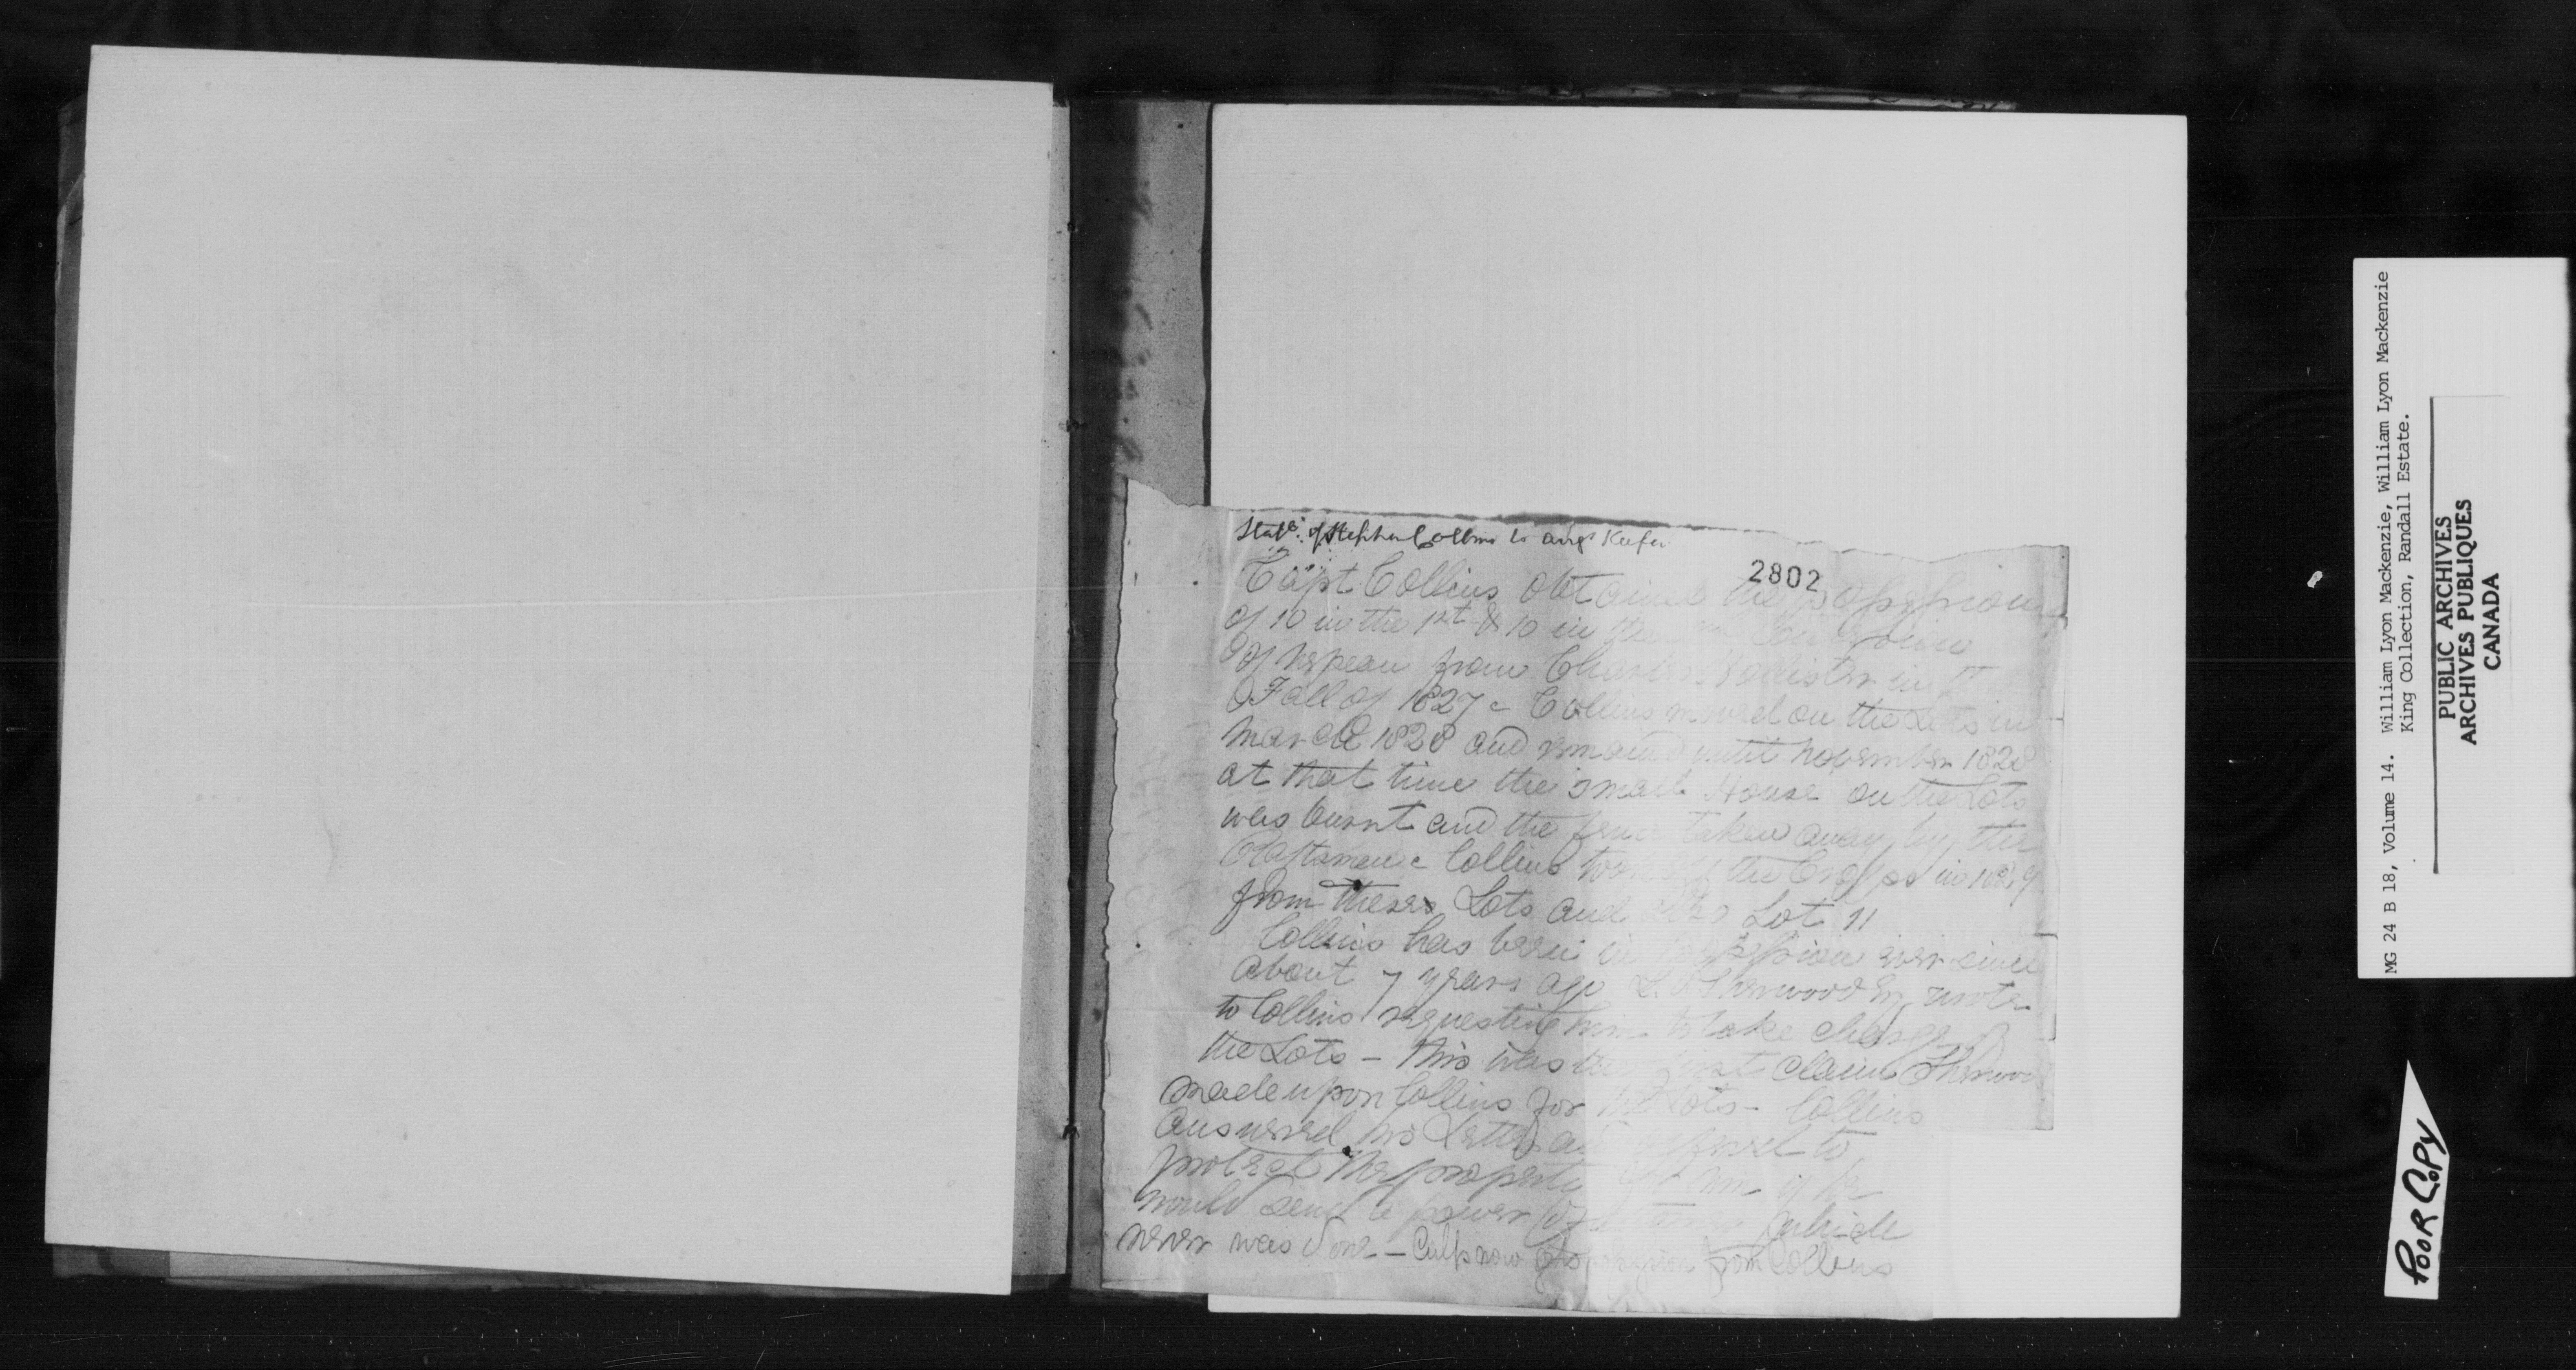 Statt. of Stephen Collins to Augs Keefer
2802
Capt. Collins obtained the possession
of 10 in the 1st & 10 in the
of Nepean from Charles Hollister in
Fall of 1827 - Collins moved on the Lots in
March 1828 and remaind until November 1828
at that time the small House on the Lots
was burnt and the fence taken away by the
Raftsmen - Collins took off the Crops in 1829
from theses Lots and also Lot 11
Collins has been in possession ever since
about 7 years ago L. P. Sherwood Esq wrote
to Collins requesting him to take charge of
the Lots - this was the first claim Sherwood
made upon Collins for the Lots - Collins
answered his Letter and offered to
protect the property for him if he
would send a power of attorney which
never was done - Culp now possession from Collins
MG 24 B 18, Volume 14. William Lyon Mackenzie, William Lyon Mackenzie
King Collection, Randall Estate.
PUBLIC ARCHIVES
ARCHIVES PUBLIQUES
CANADA
POOR COPY